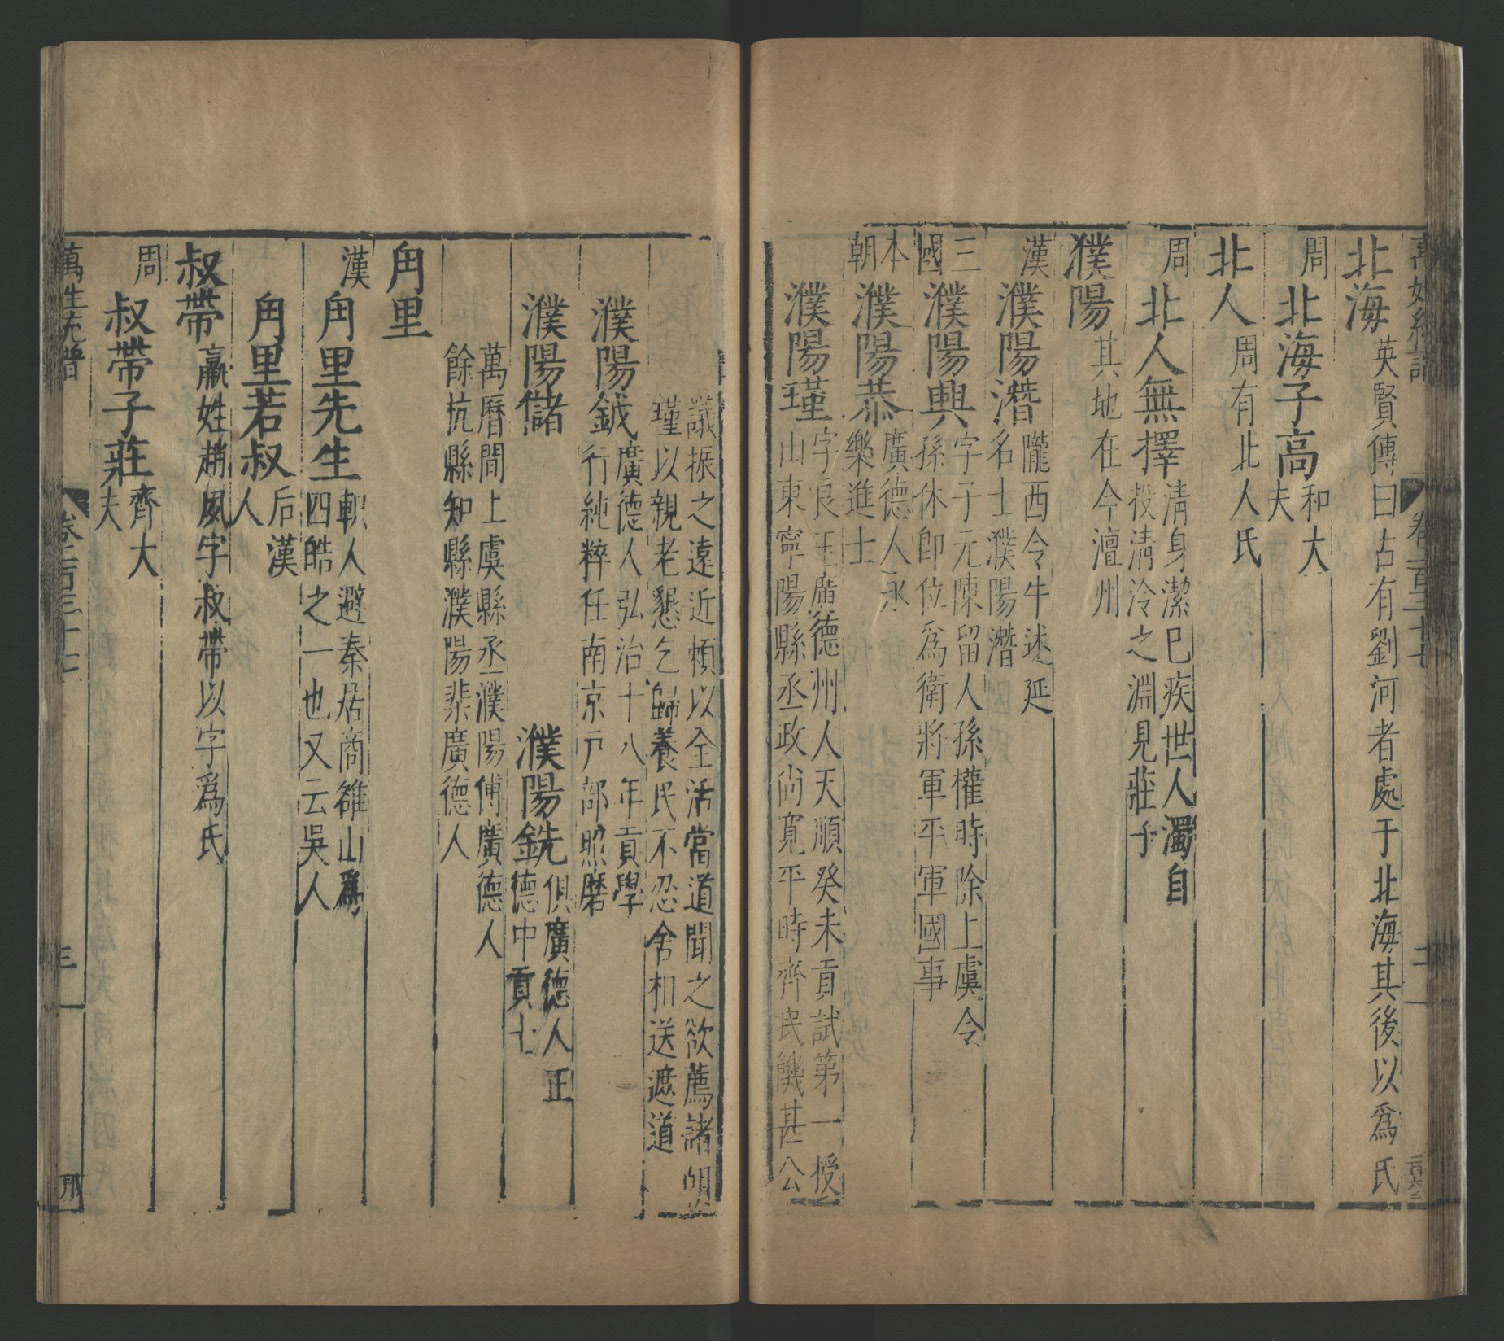 萬姓統譜
卷一百三十七
二
北海
英賢傳曰古有劉河者處于北海其後以爲氏
周
北海子高
和大
夫
北人
周有北人氏
周
北人無擇
清身潔巳疾世人濁自
投清泠之淵見莊子
濮陽
其地在今澶州
漢
濮陽潛
隴西令牛述延
名士濮陽潛
三
國
濮陽興
字子元陳留人孫權時除上虞令
孫休即位爲衛將軍平軍國事
本
朝
濮陽恭
廣德人永
樂進士
濮陽瑾
字良玉廣德州人天順癸未貢試第一授
山東寧陽縣丞政尚寬平時齊民饑甚公
議振之遠近頼以全活當道聞之欲薦諸朝
瑾以親老懇乞歸養民不忍舍相送遮道
濮陽鉞
廣德人弘治十八年貢學
行純粹任南京戸部照磨
濮陽儲
濮陽銑
俱廣德人正
德中貢士
萬曆間上虞縣丞濮陽傅廣德人
餘杭縣知縣濮陽棐廣德人
角里
漢
角里先生
軹人避秦居商雒山爲
四皓之一也又云吳人
角里若叔
后漢
人
叔帶
嬴姓趙夙字叔帶以字爲氏
周
叔帶子莊
齊大
夫
萬姓統譜
卷一百三十七
三